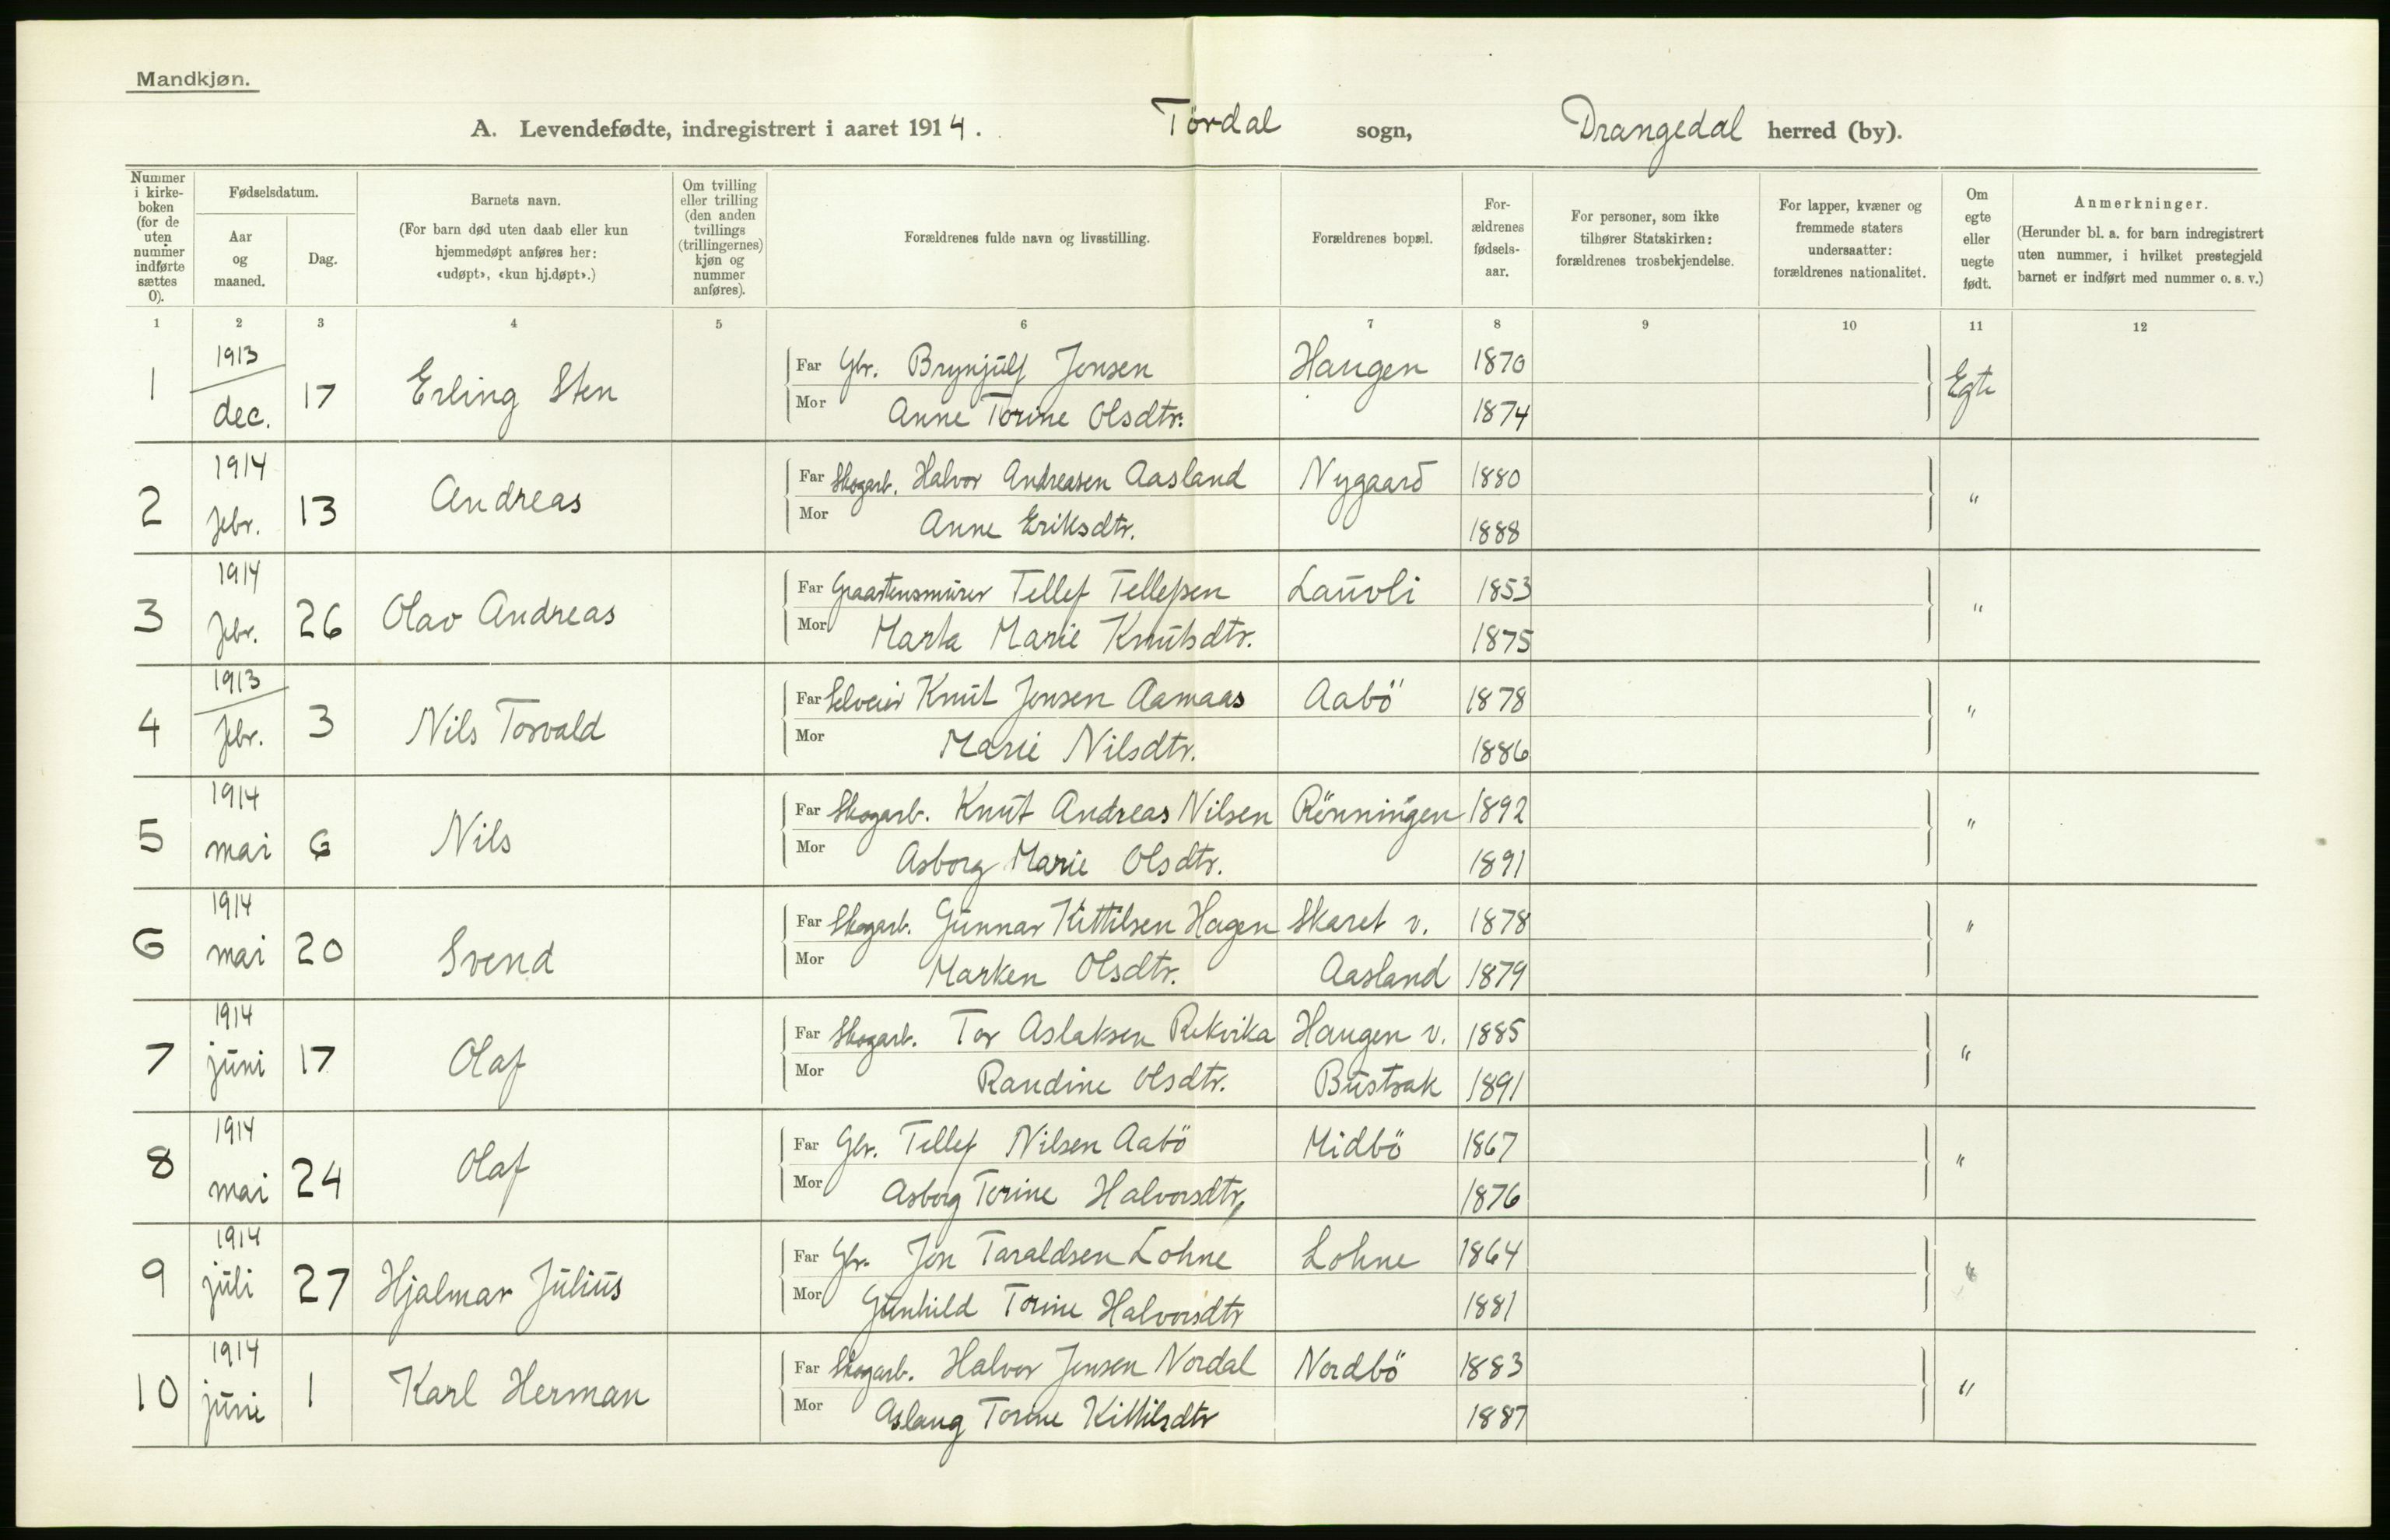 Mandkjøn.
A. Levendefødte, indregistrert i aaret 1914. Tördal sogn, Drangedal herred (by).
Nummer i kirke-boken (for de uten nummer indførte sættes 0).
Fødselsdatum.
Aar og maaned.
Dag.
Barnets navn.
(For barn død uten daab eller kun hjemmedøpt anføres her: «udøpt», «kun hj.døpt».)
Om tvilling eller trilling (den anden tvillings (trillingernes) kjøn og nummer anføres).
Forældrenes fulde navn og livsstilling.
Forældrenes bopæl.
For-ældrenes fødsels-aar.
For personer, som ikke tilhører Statskirken: forældrenes trosbekjendelse.
For lapper, kvæner og fremmede staters undersaatter: forældrenes nationalitet.
Om egte eller uegte født.
Anmerkninger.
(Herunder bl. a. for barn indregistrert uten nummer, i hvilket prestegjeld barnet er indført med nummer o. s. v.)
1 2 3 4 5 6 7 8 9 10 11 12
1 1913 dec. 17 Erling Sten Far Gbr. Brynjulf Jensen Haugen 1870 Egte
Mor Anne Torine Olsdtr. 1874
2 1914 febr. 13 Andreas Far Skogarb. Halvor Andreasen Aasland Nygaard 1880 "
Mor Anne Eriksdtr. 1888
3 1914 febr. 26 Olav Andreas Far Graastensmurer Tellef Tellefsen Lauvli 1853 "
Mor Marta Marie Knutsdtr. 1875
4 1913 febr. 3 Nils Torvald Far Selveier Knut Jensen Aamaas Aabö 1878 "
Mor Marie Nilsdtr. 1886
5 1914 mai 6 Nils Far Skogarb. Knut Andreas Nilsen Rönningen 1892 "
Mor Asborg Marie Olsdtr. 1891
6 1914 mai 20 Svend Far Skogarb. Gunnar Kittilsen Hagen Skaret v. 1878 "
Mor Marken Olsdtr. Aasland 1879
7 1914 juni 17 Olaf Far Skogarb. Tor Aslaksen Rekvika Haugen v. 1885 "
Mor Randine Olsdtr. Bustrak 1891
8 1914 mai 24 Olaf Far Gbr. Tellef Nilsen Aabö Midbö 1867 "
Mor Asborg Torine Halvorsdtr. 1876
9 1914 juli 27 Hjalmar Julius Far Gbr. Jon Taraldsen Lohne Lohne 1864 "
Mor Gunhild Torine Halvorsdtr 1881
10 1914 juni 1 Karl Herman Far Skogarb. Halvor Jensen Nordal Nordbö 1883 "
Mor Aslaug Torine Kittilsdtr 1887